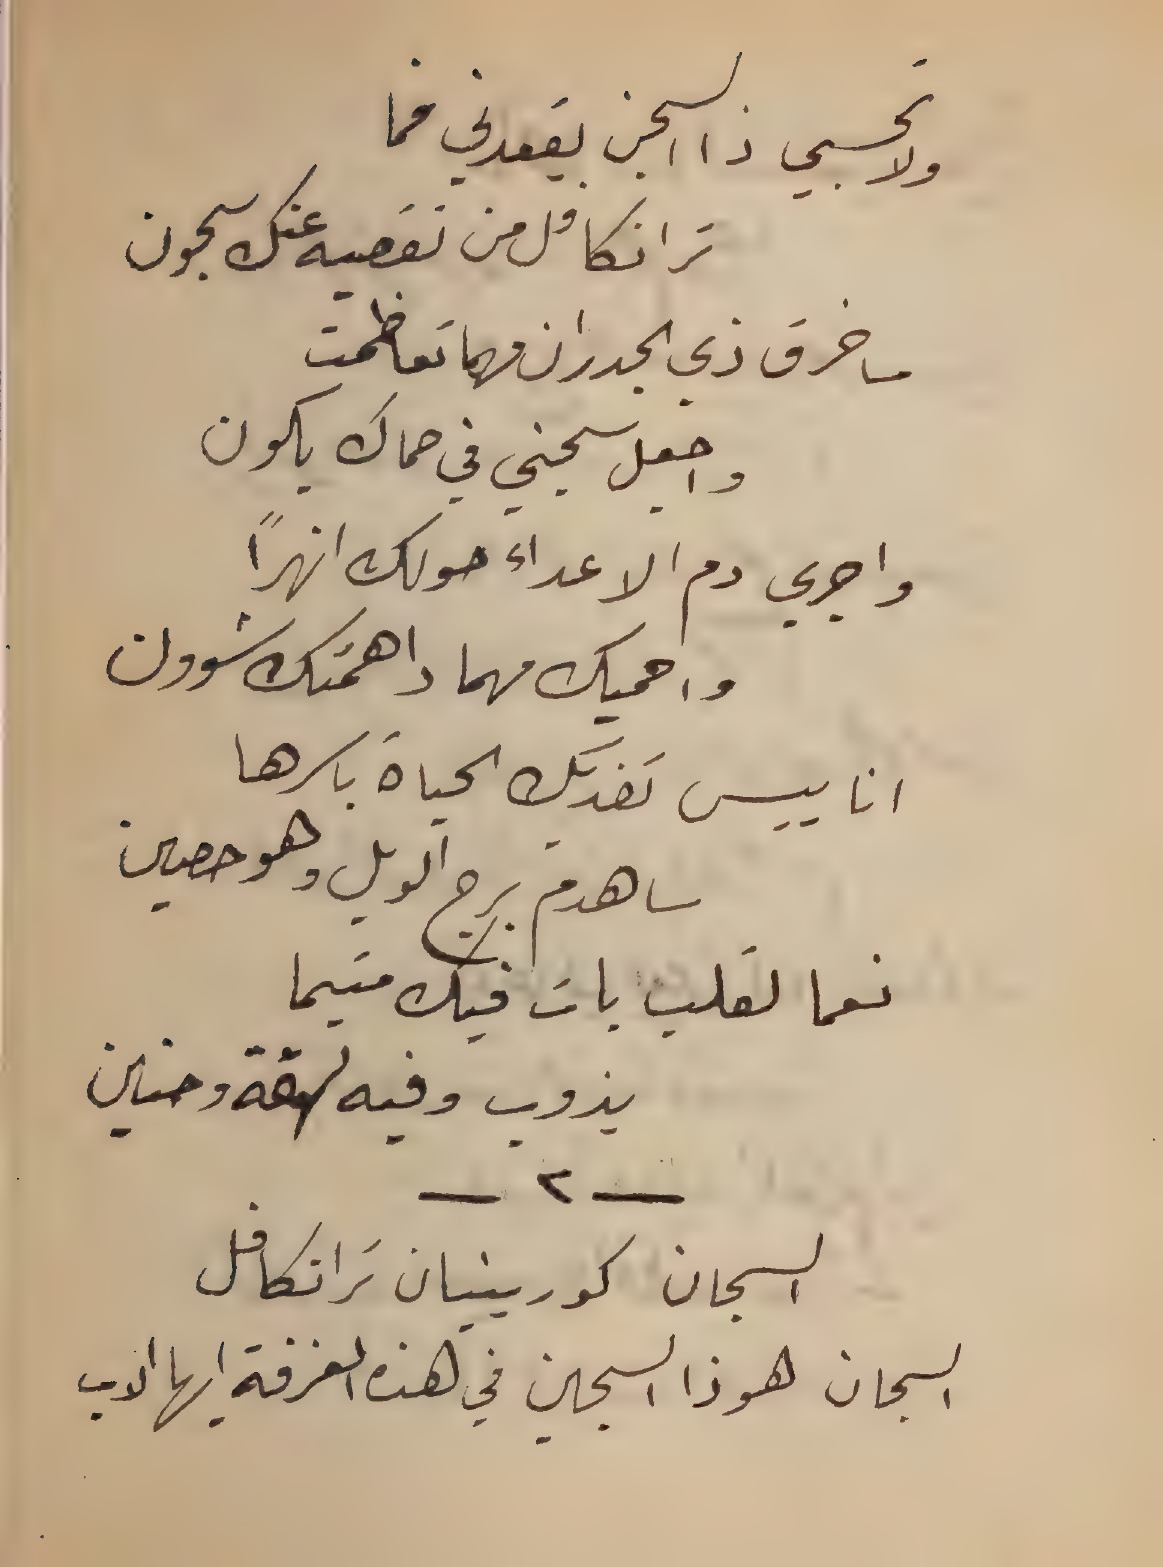 ولا تحسبي ذا السجن يقعدني فما
ترانكافل من تقصيه عنك سجون
ساخرق ذي الجدران مهما تعاظمت
واجعل سجني في حماك يكون
واجري دم الاعداء حولك انهراً
واحميك مهما داهمتك شوون
اناييس تفديك الحياة باسرها
ساهدم برج الويل وهو حصين
نعما لقلب بات فيك متيما
يذوب وفيه لهفة وحنين
— ٢ —
السجان كورينيان ترانكافل
السجان هوذا السجين في هذه الغرفة ايها الاب